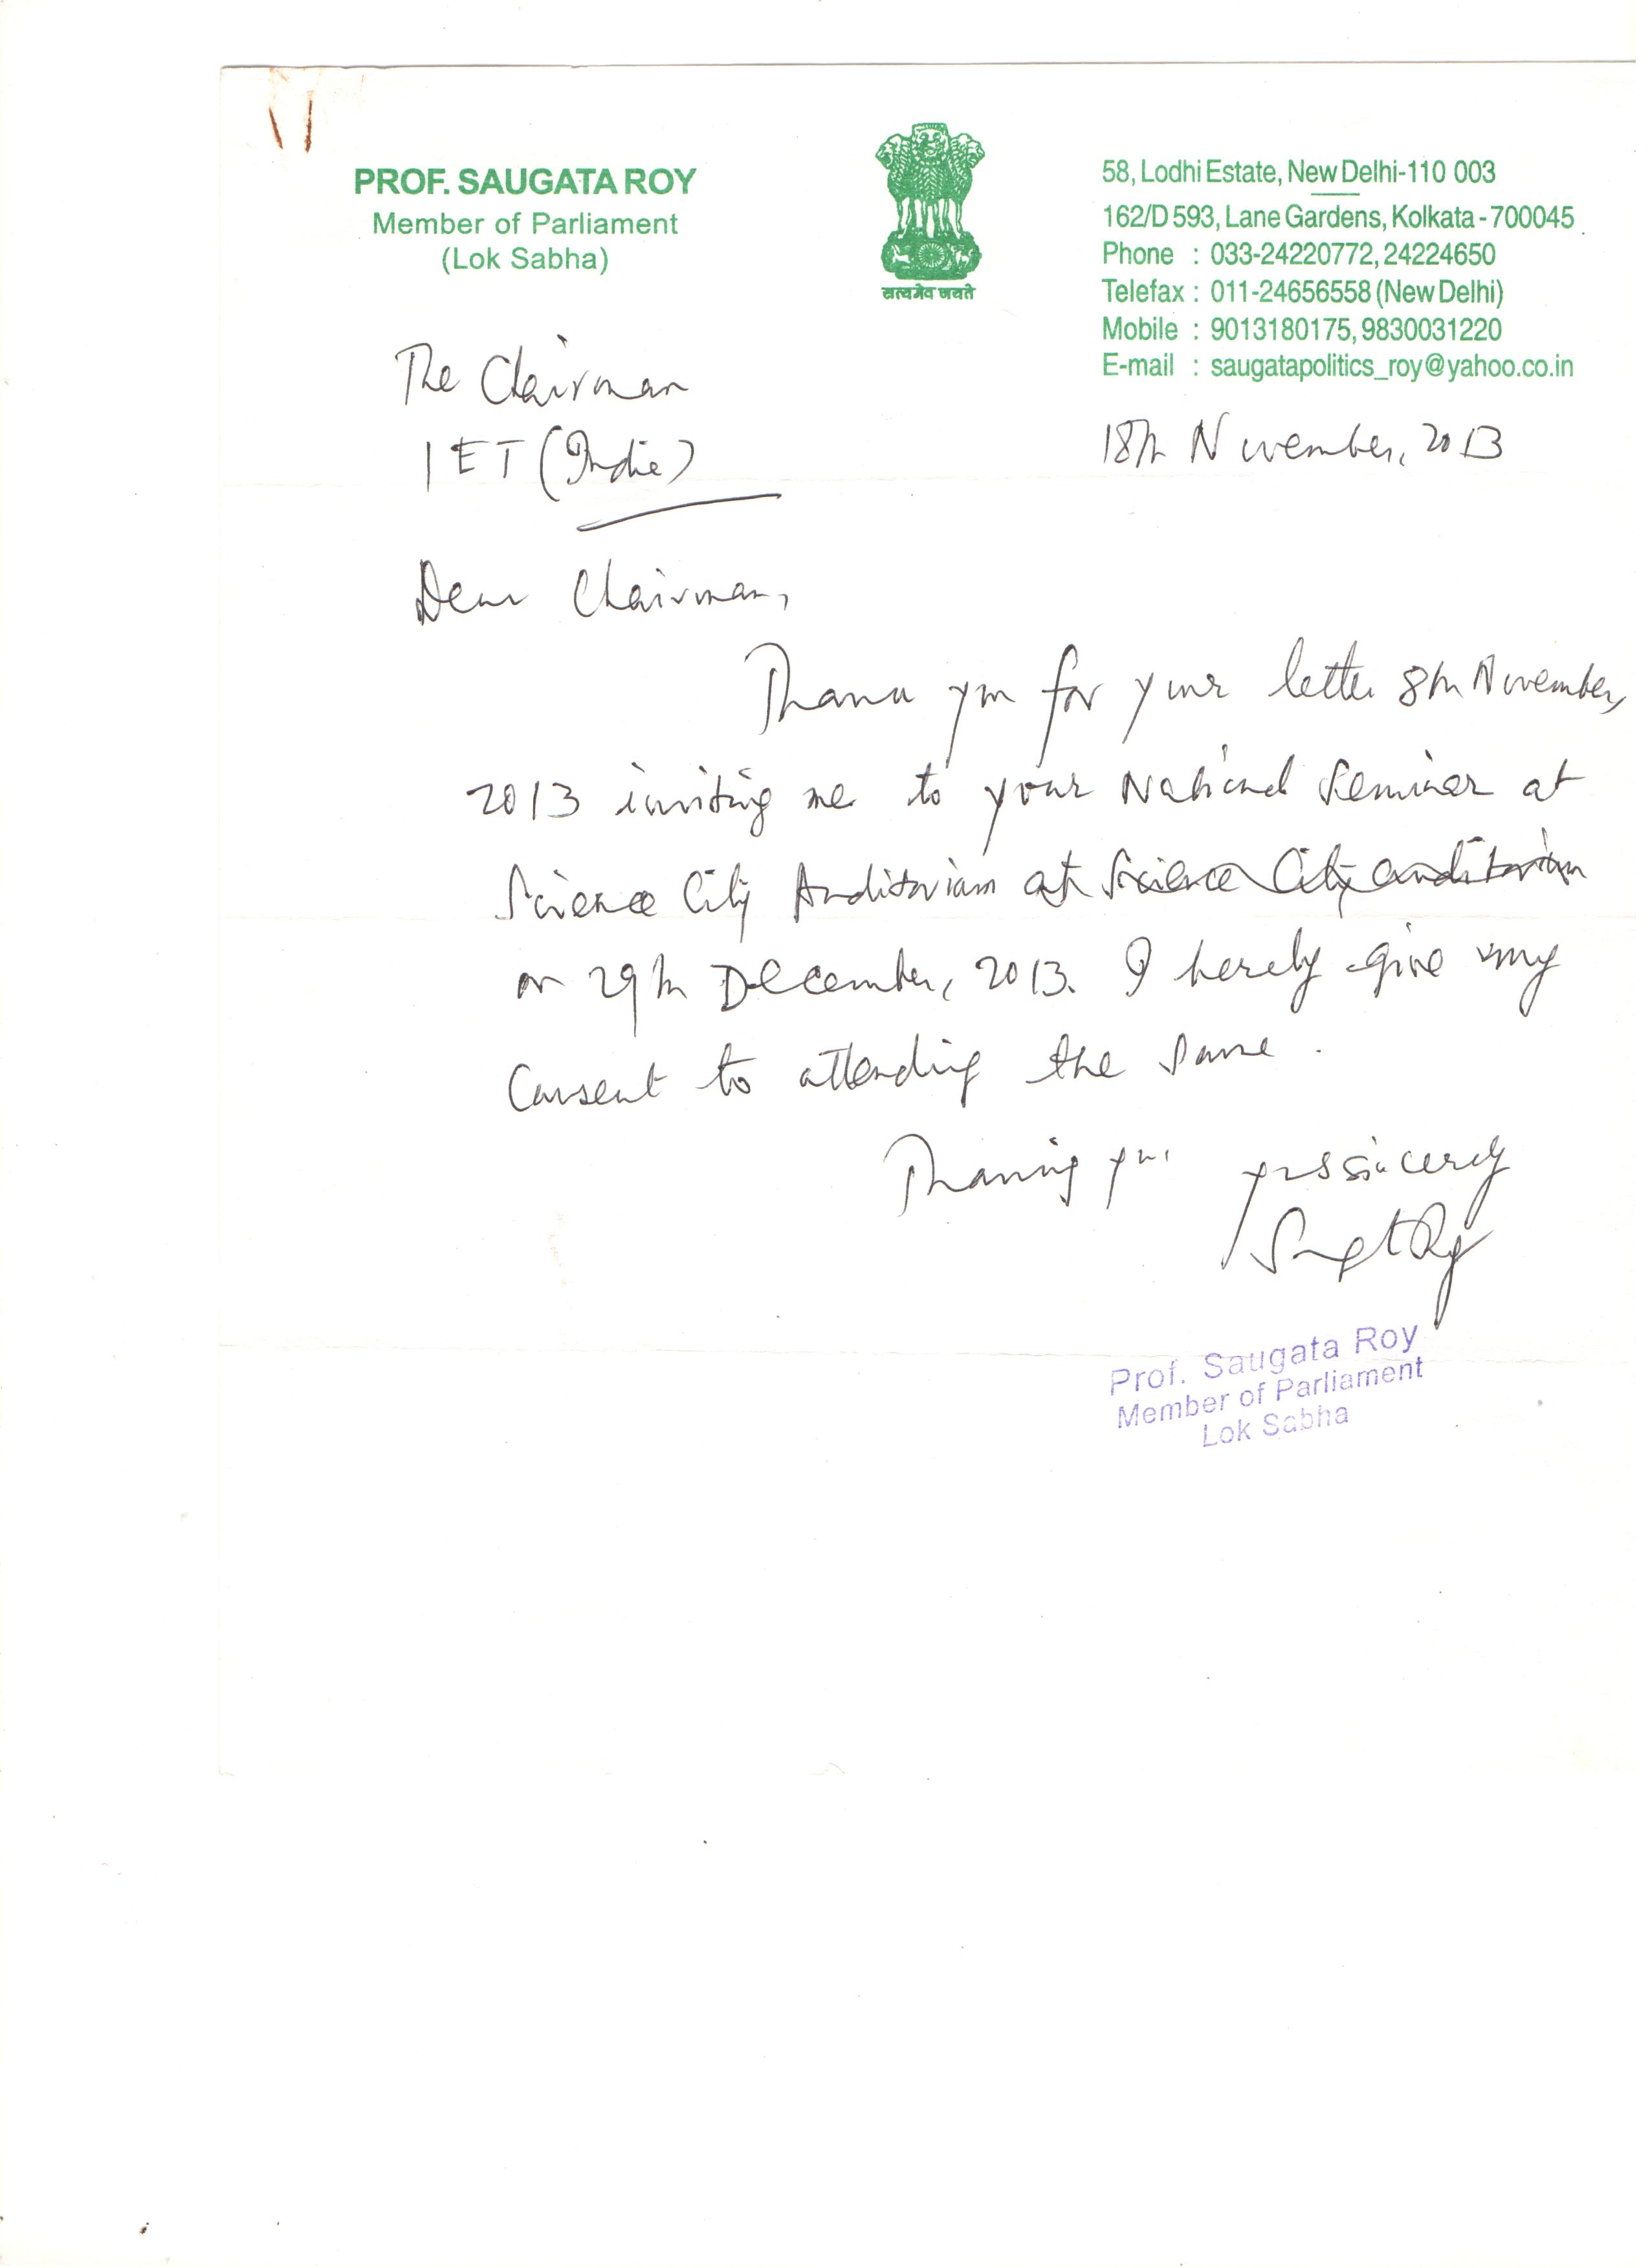 PROF. SAUGATA ROY
Member of Parliament
(Lok Sabha)
सत्यमेव जयते
58, Lodhi Estate, New Delhi-110 003
162/D 593, Lane Gardens, Kolkata - 700045
Phone : 033-24220772, 24224650
Telefax : 011-24656558 (New Delhi)
Mobile : 9013180175, 9830031220
E-mail : saugatapolitics_roy@yahoo.co.in
The Chairman
IET (India)
18th November, 2013
Dear Chairman,
Thank you for your letter 8th November,
2013 inviting me to your National Seminar at
Science City Auditorium at Science City auditorium
on 29th December, 2013. I hereby give my
Consent to attending the same.
Thanking you yours sincerely
Saugata Roy
Prof. Saugata Roy
Member of Parliament
Lok Sabha